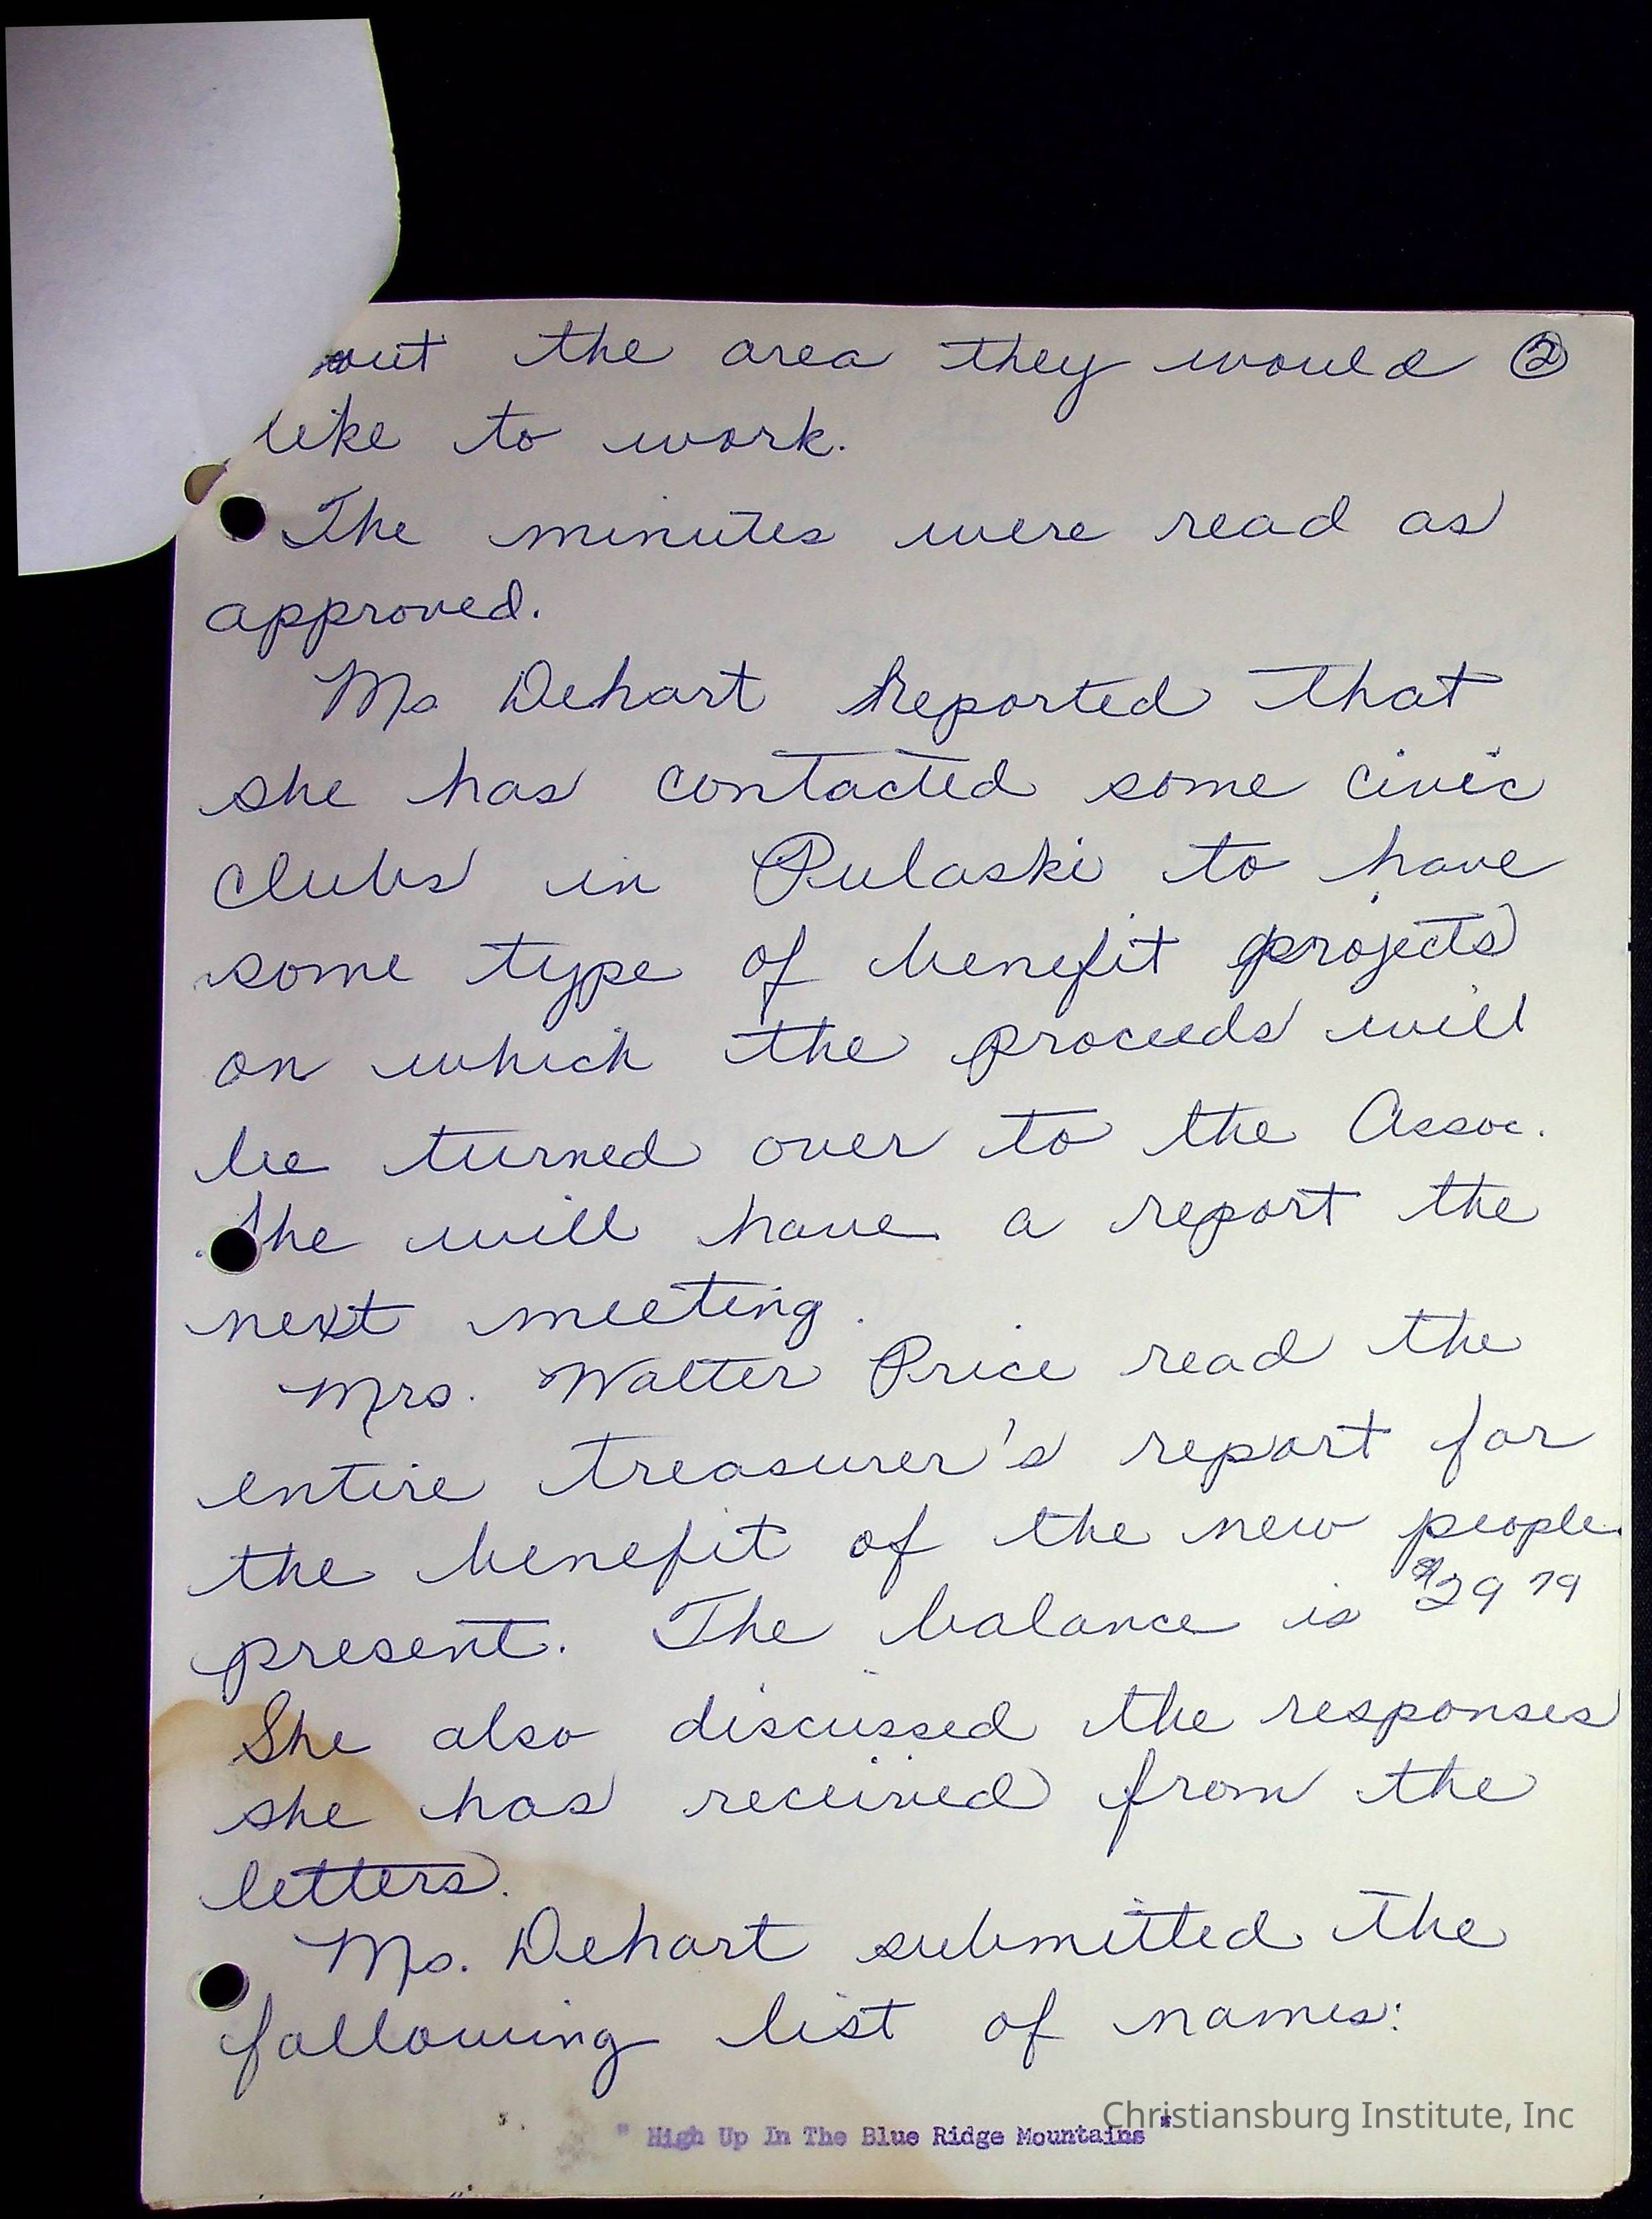 out the area they would ②
like to work.
The minutes were read as
approved.
Ms Dehart Reported that
she has contacted some civic
clubs in Pulaski to have
some type of benefit projects
on which the proceeds will
be turned over to the Assoc.
She will have a report the
next meeting.
Mrs. Walter Price read the
entire treasurer's report for
the benefit of the new people
present. The balance is $29 79
She also discussed the responses
she has received from the
letters.
Ms. Dehart submitted the
following list of names:
Christiansburg Institute, Inc
" High Up In The Blue Ridge Mountains "